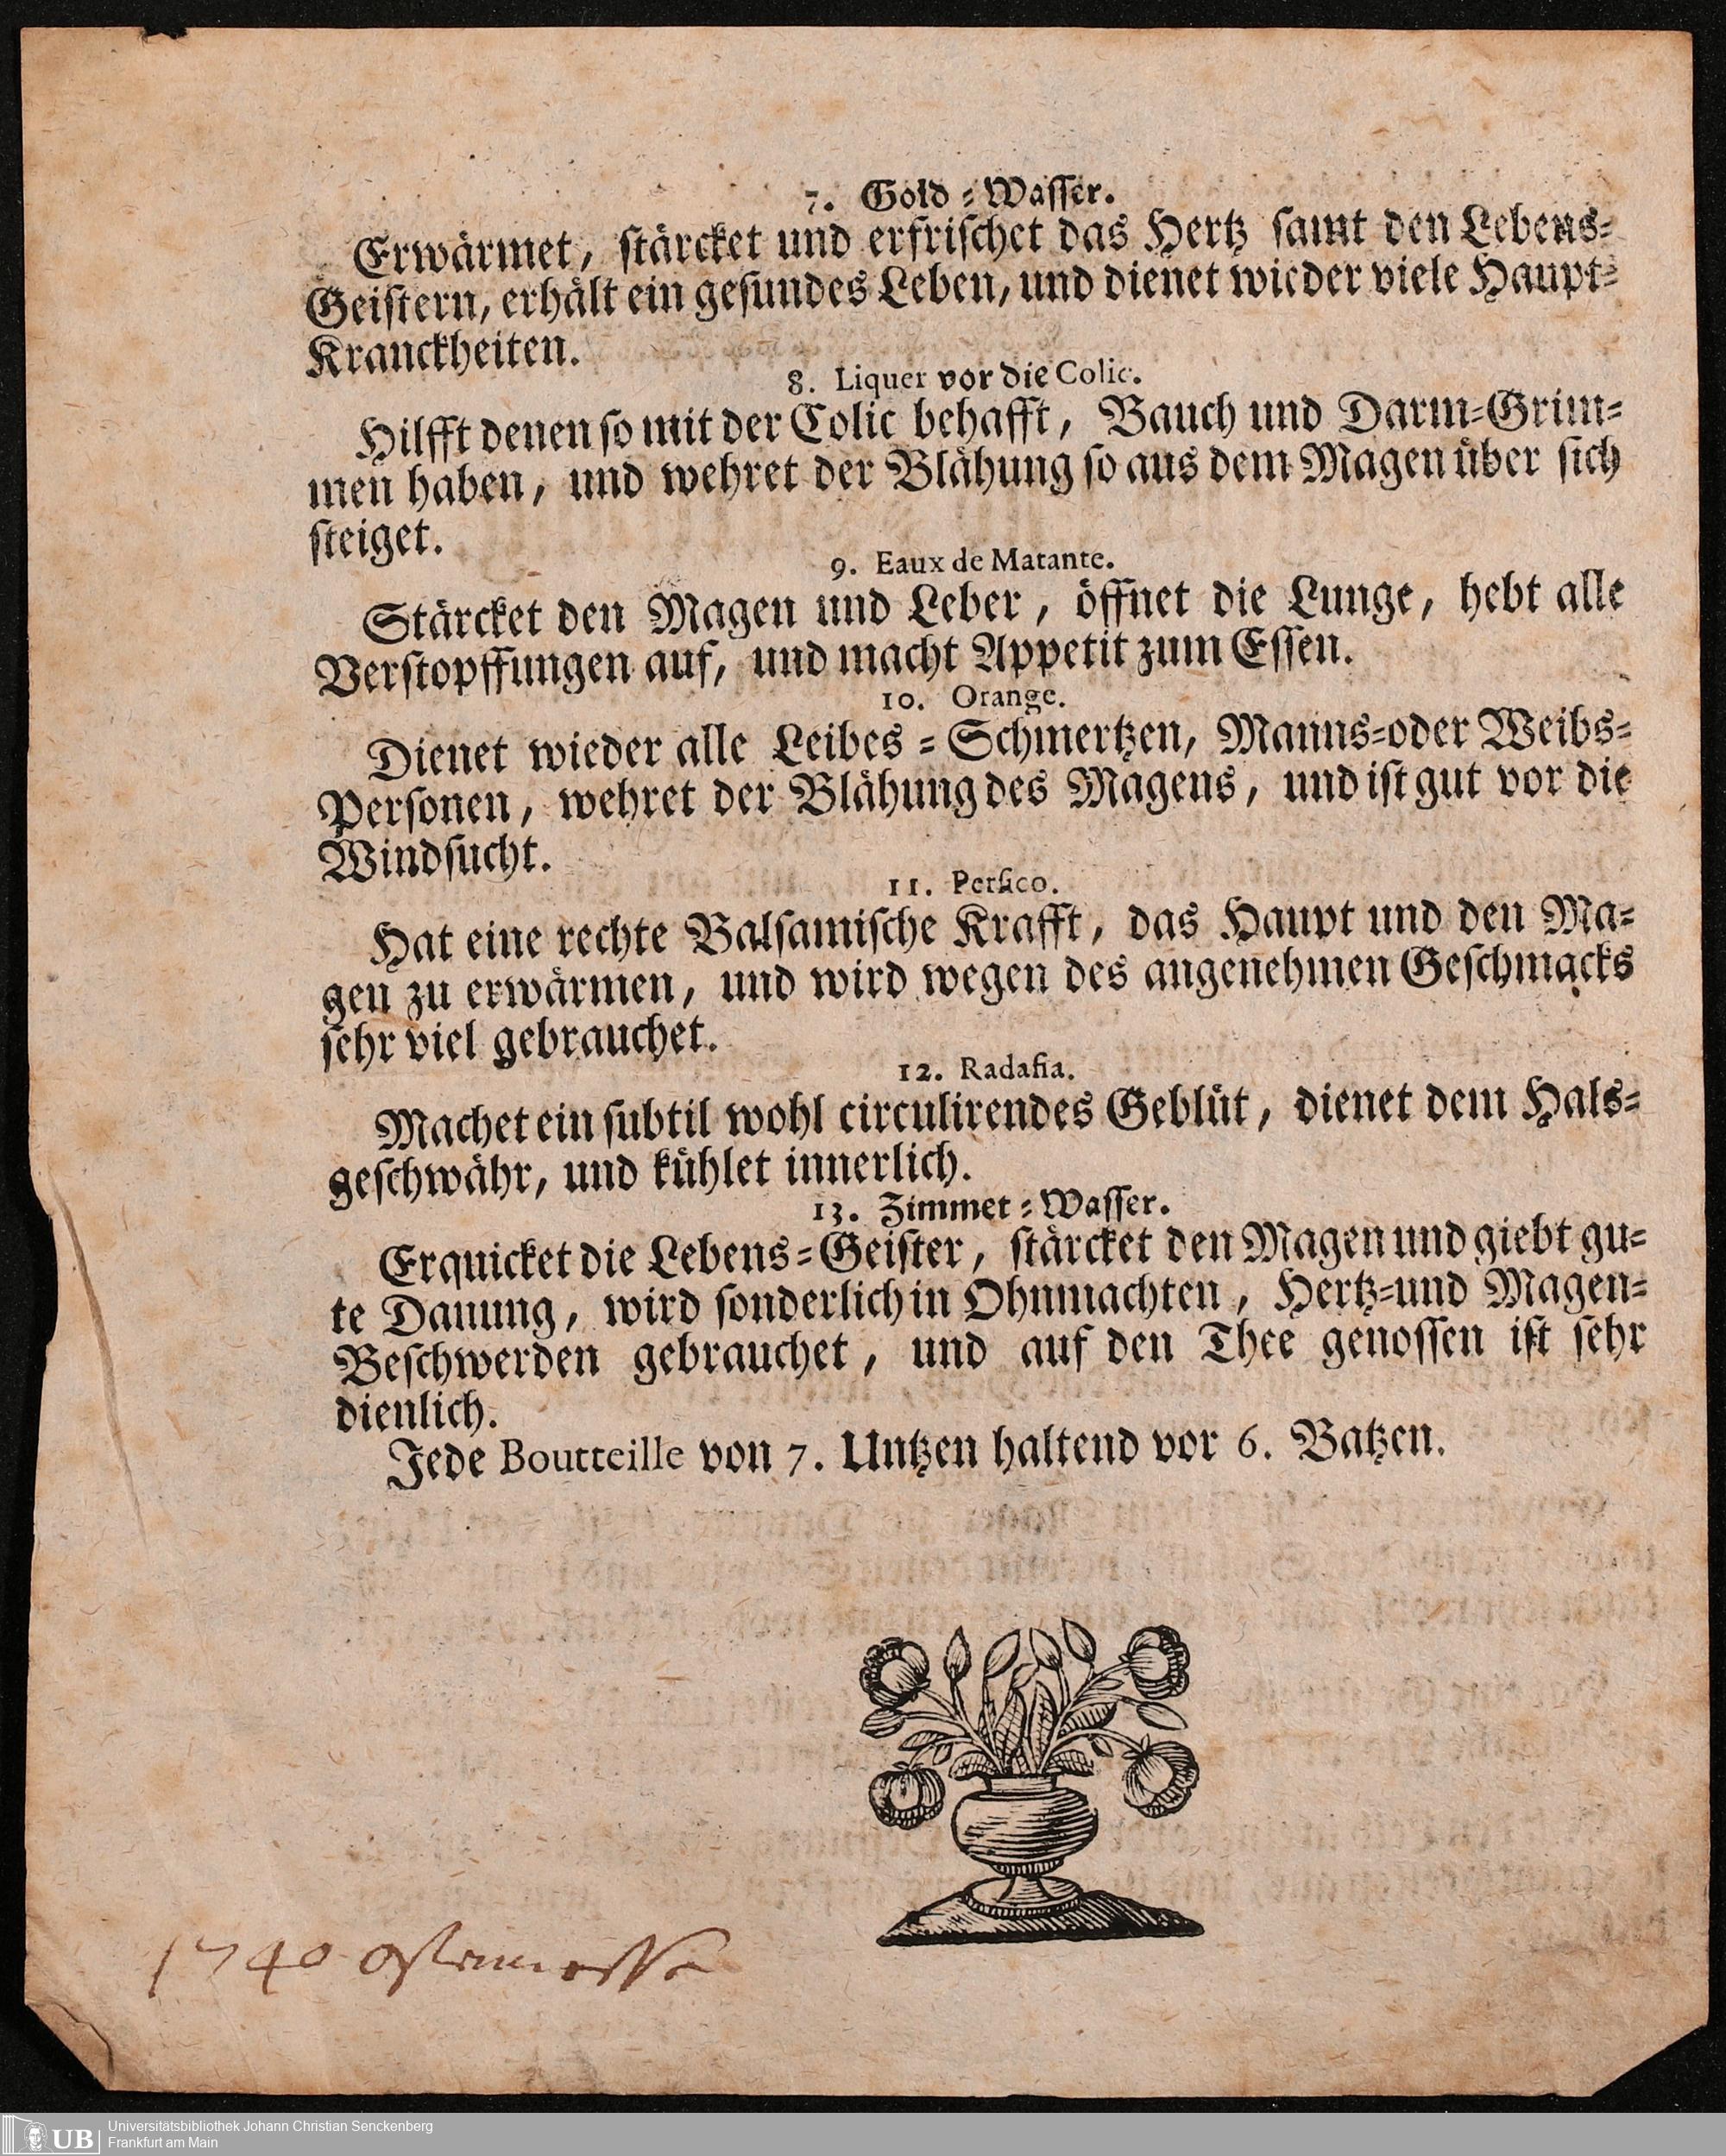 7. Gold-Wasser.
Erwärmet, stärcket und erfrischet das Hertz samt den Lebens-
Geistern, erhält ein gesundes Leben, und dienet wieder viele Haupt-
Kranckheiten.
8. Liquer vor die Colic.
Hilfft denen so mit der Colic behafft, Bauch und Darm-Grim-
men haben, und wehret der Blähung so aus dem Magen über sich
steiget.
9. Eaux de Matante.
Stärcket den Magen und Leber, öffnet die Lunge, hebt alle
Verstopffungen auf, und macht Appetit zum Essen.
10. Orange.
Dienet wieder alle Leibes-Schmertzen, Manns-oder Weibs-
Personen, wehret der Blähung des Magens, und ist gut vor die
Windsucht.
11. Persico.
Hat eine rechte Balsamische Krafft, das Haupt und den Ma-
gen zu erwärmen, und wird wegen des angenehmen Geschmacks
sehr viel gebrauchet.
12. Radafia.
Machet ein subtil wohl circulirendes Geblüt, dienet dem Hals-
geschwähr, und kühlet innerlich.
13. Zimmet-Wasser.
Erquicket die Lebens-Geister, stärcket den Magen und giebt gu-
te Dauung, wird sonderlich in Ohnmachten, Hertz-und Magen-
Beschwerden gebrauchet, und auf den Thee genossen ist sehr
dienlich.
Jede Boutteille von 7. Untzen haltend vor 6. Batzen.
1740 Ostermesse
UB Universitätsbibliothek Johann Christian Senckenberg
Frankfurt am Main